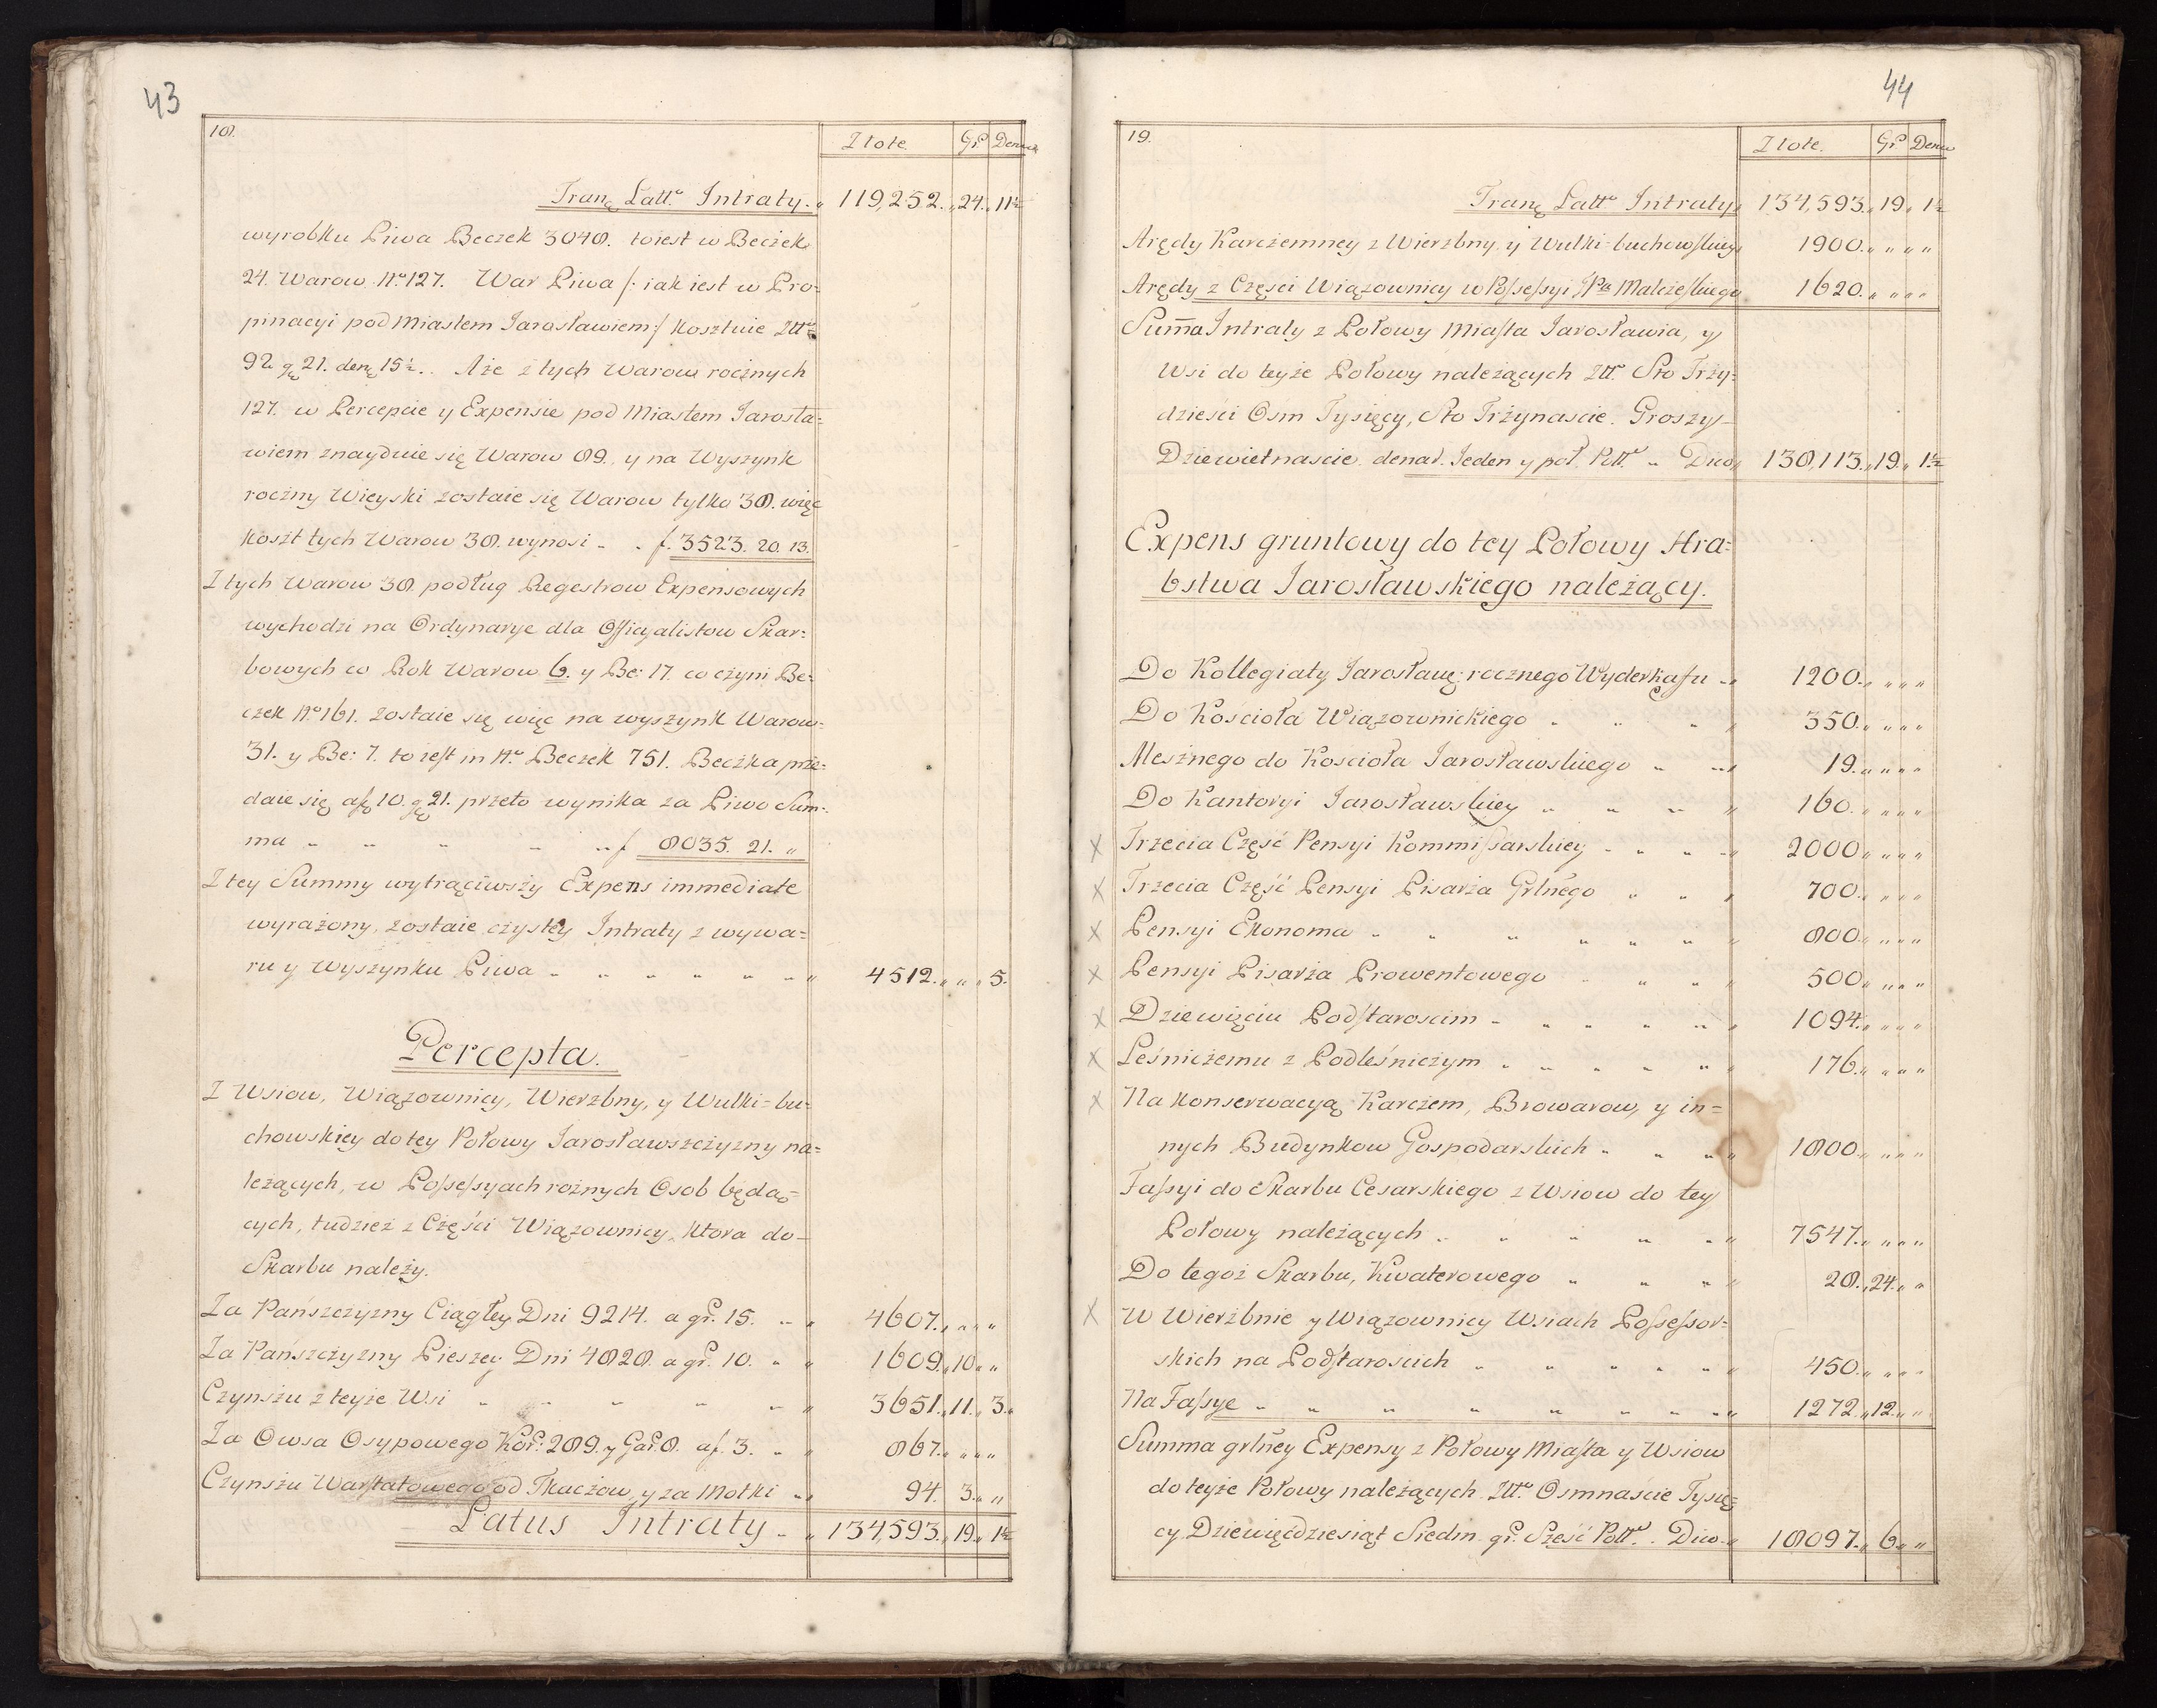 43
18.
Złote. Gr. Denar
Tranę Latt.ᵘ Intraty. „ 119,252. „ 24. „ 11½
wyrobku Piwa Beczek 3048. to iest w Beczek
24. Warow N.º 127. War Piwa /: iak iest w Pro=
pinacyi pod Miastem Jarosławiem :/ kosztuie Złł.
92 gę 21. denę 15½. . A że z tych Warow rocznych
127. w Percepcie y Expensie pod Miastem Jarosła=
wiem znayduie się Warow 89. y na Wyszynk
roczny Wieyski zostaie się Warow tylko 38. więc
koszt tych Warow 38. wynosi „ . f. 3523. 20. 13.
Z tych Warow 38. podług Regestrow Expensowych
wychodzi na Ordynarye dla Officyalistow Skar=
bowych co Rok Warow 6. y Be: 17. co czyni Be=
czek N.º 161. zostaie się więc na wyszynk Warow=
31. y Be: 7. to iest in N.º Beczek 751. Beczka prze=
daie się af. 10. gę 21. przeto wynika za Piwo Sum=
ma „ „ „ „ „ f 8035. 21. „
Z tey Summy wytrąciwszy Expens immediate
wyrażony, zostaie czystey Intraty z wywa=
ru y Wyszynku Piwa „ „ „ „ „ „ 4512. „ „ „ 5.
Percepta.
Z Wsiow, Wiązownicy, Wierzbny, y Wulki=bu=
chowskiey do tey Połowy Jarosławszczyzny na=
leżących, w Possessyach rożnych Osob będą=
cych, tudzież z Części Wiązownicy, ktora do=
Skarbu należy.
Za Pańszczyzny Ciągłey Dni 9214. a gr. 15. „ „ 4607. „ „ „ „
Za Pańszczyzny Pieszey Dni 4828. a gr. 10. „ „ 1609. „ 10. „ „
Czynszu z teyże Wsi „ „ „ „ „ „ 3651. „ 11. „ 3. „
Za Owsa Osypowego Kor: 289. y Gar. 8. af. 3. „ „ 867. „ „ „ „
Czynszu Warstatowego od Tkaczow, y za Motki „ „ 94. 3. „ „
Latus Intraty „ „ 134,593. „ 19. „ 1½
44
19.
Złote. Gr. Denar
Tranę Latt.ᵘ Intraty „ 134,593. „ 19. „ 1½
Arędy Karczemney z Wierzbny, y Wulki=buchowskiey „ 1900. „ „ „ „
Arędy z Części Wiązownicy w Possessyi JPa Malczeskiego „ 1620. „ „ „ „
Sum̄a Intraty z Połowy Miasta Jarosławia, y
Wsi do teyże Połowy należących Złł. Sto Trzy=
dzieści Osm Tysięcy, Sto Trzynascie. Groszy
Dziewietnascie. denar. Jeden y poł. Poll. „ Dico „ 138,113. „ 19. „ 1½
Expens gruntowy do tey Połowy Hra=
bstwa Jarosławskiego należący.
Do Kollegiaty Jarosławę: rocznego Wyderkafu „ „ 1200. „ „ „ „
Do Kościoła Wiązownickiego „ „ „ „ 350. „ „ „ „
Mesznego do Kościoła Jarosławskiego „ „ „ 19. „ „ „ „
Do Kantoryi Jarosławskiey „ „ „ „ 160. „ „ „ „
X Trzecia Część Pensyi Kommissarskiey „ „ „ „ 2000. „ „ „ „
X Trzecia Część Pensyi Pisarza Grlnego „ „ „ 700. „ „ „ „
X Pensyi Ekonoma „ „ „ „ „ „ „ 800. „ „ „ „
X Pensyi Pisarza Prowentowego „ „ „ „ 500. „ „ „ „
X Dziewięciu Podstaroscim „ „ „ „ „ „ 1094. „ „ „ „
X Leśniczemu z Podleśniczym „ „ „ „ „ „ 176. „ „ „ „
X Na konserwacyą Karczem, Browarow, y in=
nych Budynkow Gospodarskich „ „ „ „ 1800. „ „ „ „
Fassyi do Skarbu Cesarskiego z Wsiow do tey
Połowy należących „ „ „ „ „ „ 7547. „ „ „ „
Do tegoż Skarbu, Kwaterowego „ „ „ „ 28. „ 24. „ „
X W Wierzbnie y Wiązownicy Wsiach Possessor=
skich na Podstarościch „ „ „ „ „ „ 450. „ „ „ „
Na Fassye „ „ „ „ „ „ „ „ „ 1272. „ 12. „ „
Summa grlney Expensy z Połowy Miasta y Wsiow
do teyże Połowy należących. Złł. Osmnaście Tysię=
cy Dziewięćdziesiąt Siedm. gr. Sześć Poll. . Dico „ 18097. „ 6. „ „